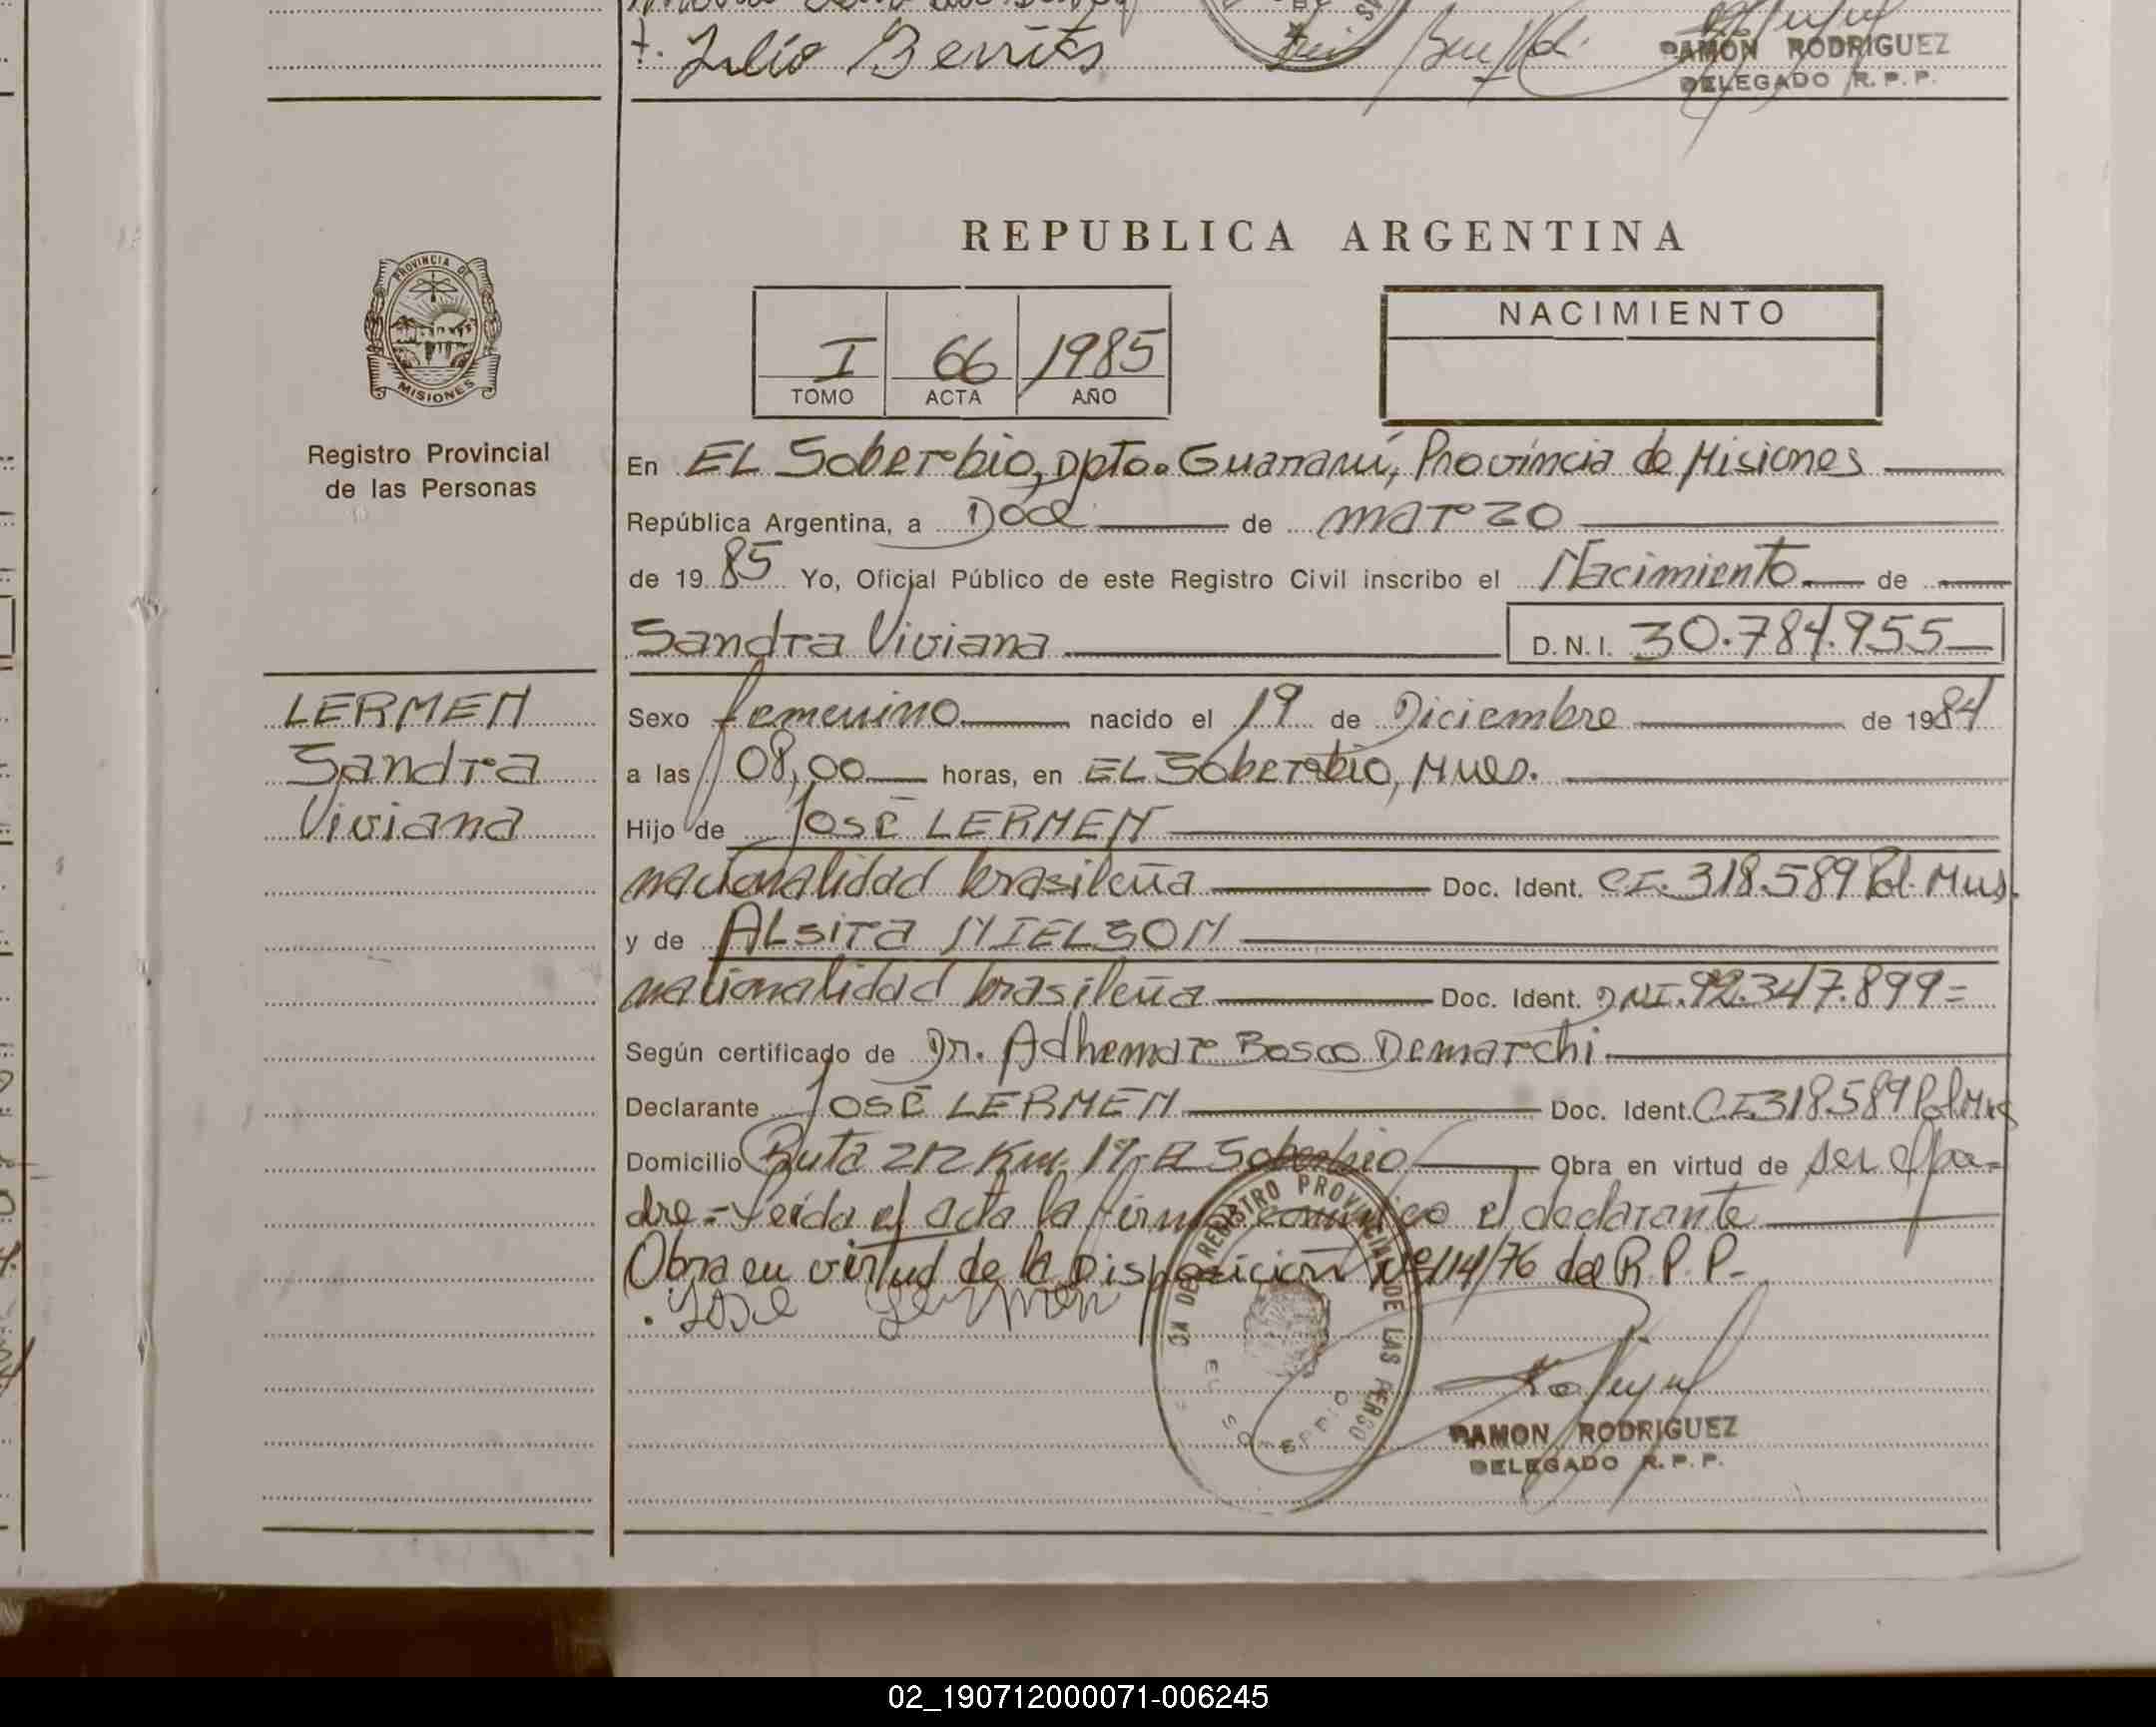 Julio Benitz
RAMON RODRIGUEZ
DELEGADO R. P. P.
REPUBLICA ARGENTINA
PROVINCIA DE
MISIONES
Registro Provincial
de las Personas
I 66 1985
TOMO ACTA AÑO
NACIMIENTO
En EL Soberbio, Dpto. Guaraní, Provincia de Misiones
República Argentina, a Doce de marzo
de 1985 Yo, Oficial Público de este Registro Civil inscribo el Nacimiento de
Sandra Viviana D. N. I. 30.784.955
LERMEN
Sandra
Viviana
Sexo femenino nacido el 19 de Diciembre de 1984
a las 08,00 horas, en EL Soberbio, Mnes.
Hijo de José LERMEN
nacionalidad brasileña Doc. Ident. CI. 318.589 Pol. Mns.
y de ALsira NIELSON
nacionalidad brasileña Doc. Ident. DNI. 92.347.899=
Según certificado de Dr. Adhemar Bosco Demarchi
Declarante José LERMEN Doc. Ident. C.I. 318.589 Pol Mns
Domicilio Ruta 212 Km. 19 El Soberbio Obra en virtud de ser el pa-
dre=Leída el acta la firma conmigo el declarante
Obra en virtud de la Disposición Nº 114/76 del R. P. P-
José Lermen
REGISTRO PROVINCIAL DE LAS PERSO
EL SOBERBIO
RAMON RODRIGUEZ
DELEGADO R. P. P.
02_190712000071-006245